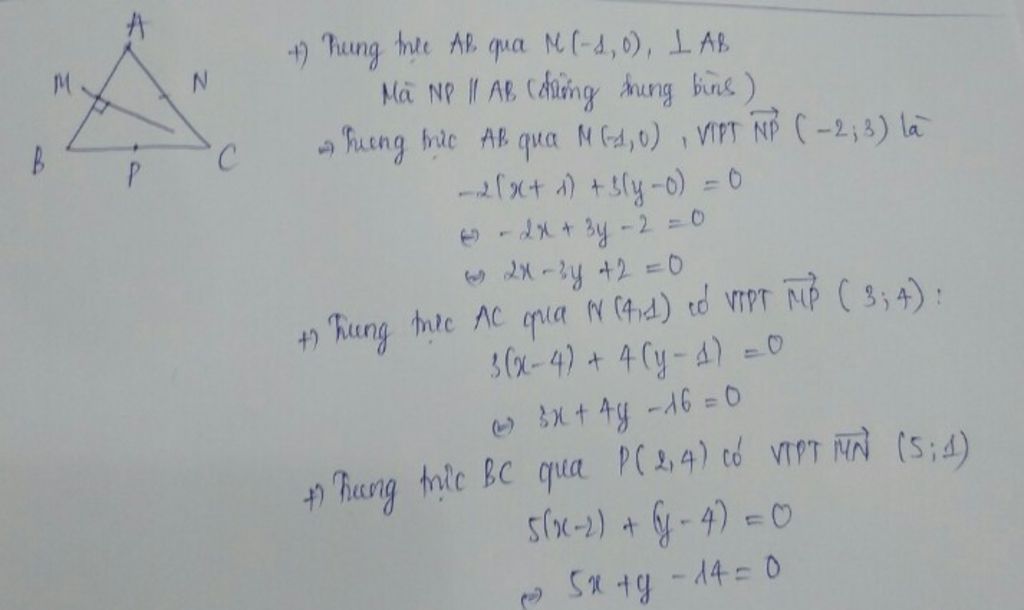 A
M
N
B
P
C
+) Trung trực AB qua M(-1,0), ⊥ AB
Mà NP // AB (đường trung bình)
⇒ Trung trực AB qua M(-1,0), VTPT \overrightarrow{NP} (-2;3) là
-2(x+1) + 3(y-0) = 0
⇔ -2x + 3y - 2 = 0
⇔ 2x - 3y + 2 = 0
+) Trung trực AC qua N(4,1) có VTPT \overrightarrow{MP} (3;4):
3(x-4) + 4(y-1) = 0
⇔ 3x + 4y - 16 = 0
+) Trung trực BC qua P(2,4) có VTPT \overrightarrow{MN} (5;1)
5(x-2) + (y-4) = 0
⇔ 5x + y - 14 = 0